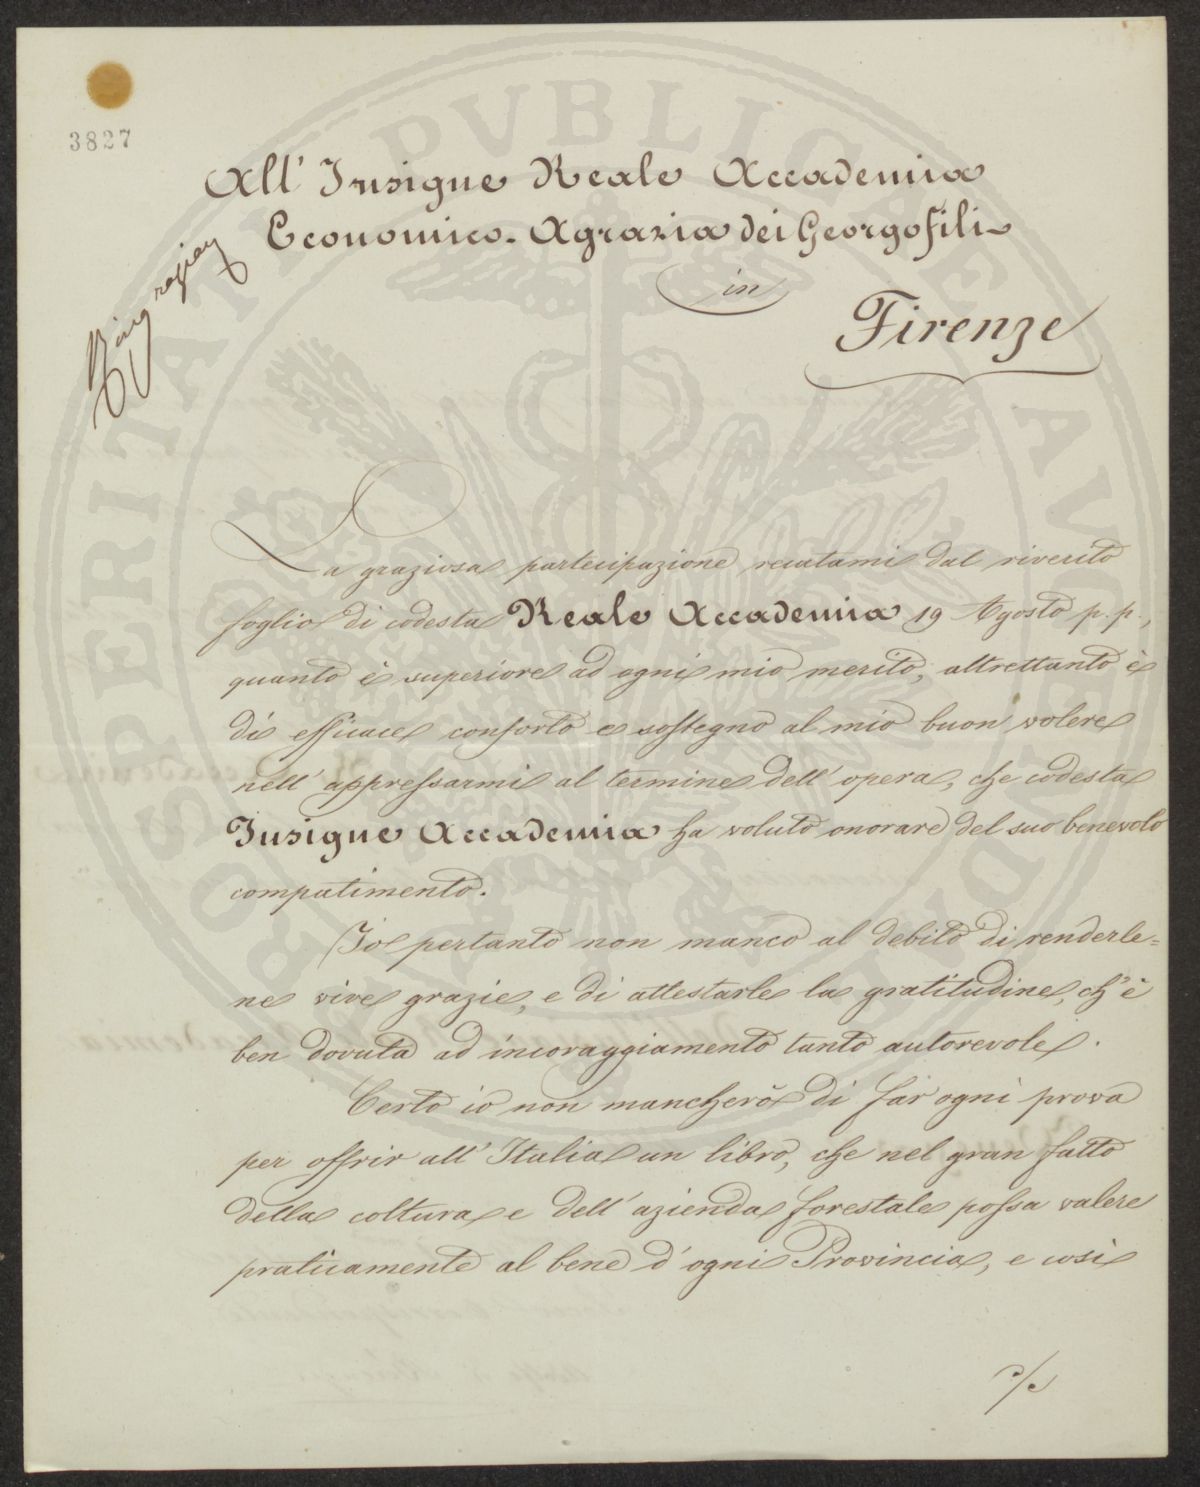 3827
All' Insigne Reale Accademia
Economico-Agraria dei Georgofili
in
Firenze
Ringraziam
La graziosa partecipazione recatami dal riverito
foglio di codesta Reale Accademia 19 Agosto p. p.,
quanto è superiore ad ogni mio merito, altrettanto è
di efficace conforto e sostegno al mio buon volere
nell' appressarmi al termine dell' opera, che codesta
Insigne Accademia ha voluto onorare del suo benevolo
compatimento.
Io pertanto non manco al debito di renderle=
ne vive grazie, e di attestarle la gratitudine, ch' è
ben dovuta ad incoraggiamento tanto autorevole.
Certo io non mancherò di far ogni prova
per offrir all' Italia un libro, che nel gran fatto
della coltura e dell' azienda forestale possa valere
praticamente al bene d' ogni Provincia, e così
./.
PROSPERITATI PVBLICAE AVGENDAE